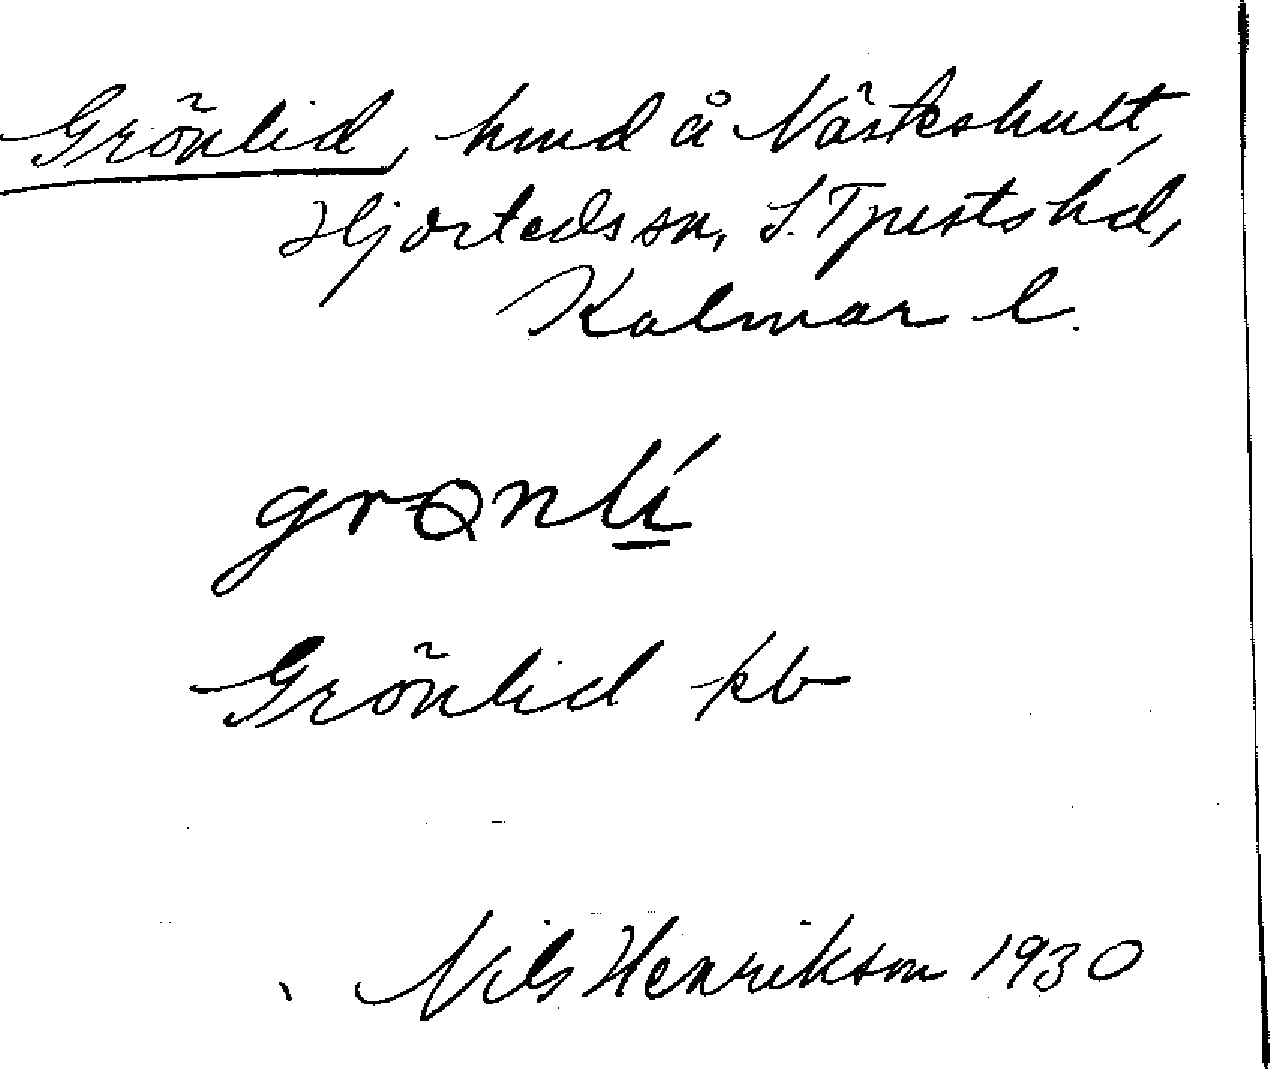 Grönlid, hmd å Näskshult,
Hjorteds sn, S. Tjusts hd,
Kalmar l.
grønlí
Grönlid kb
Nils Henrikson 1930